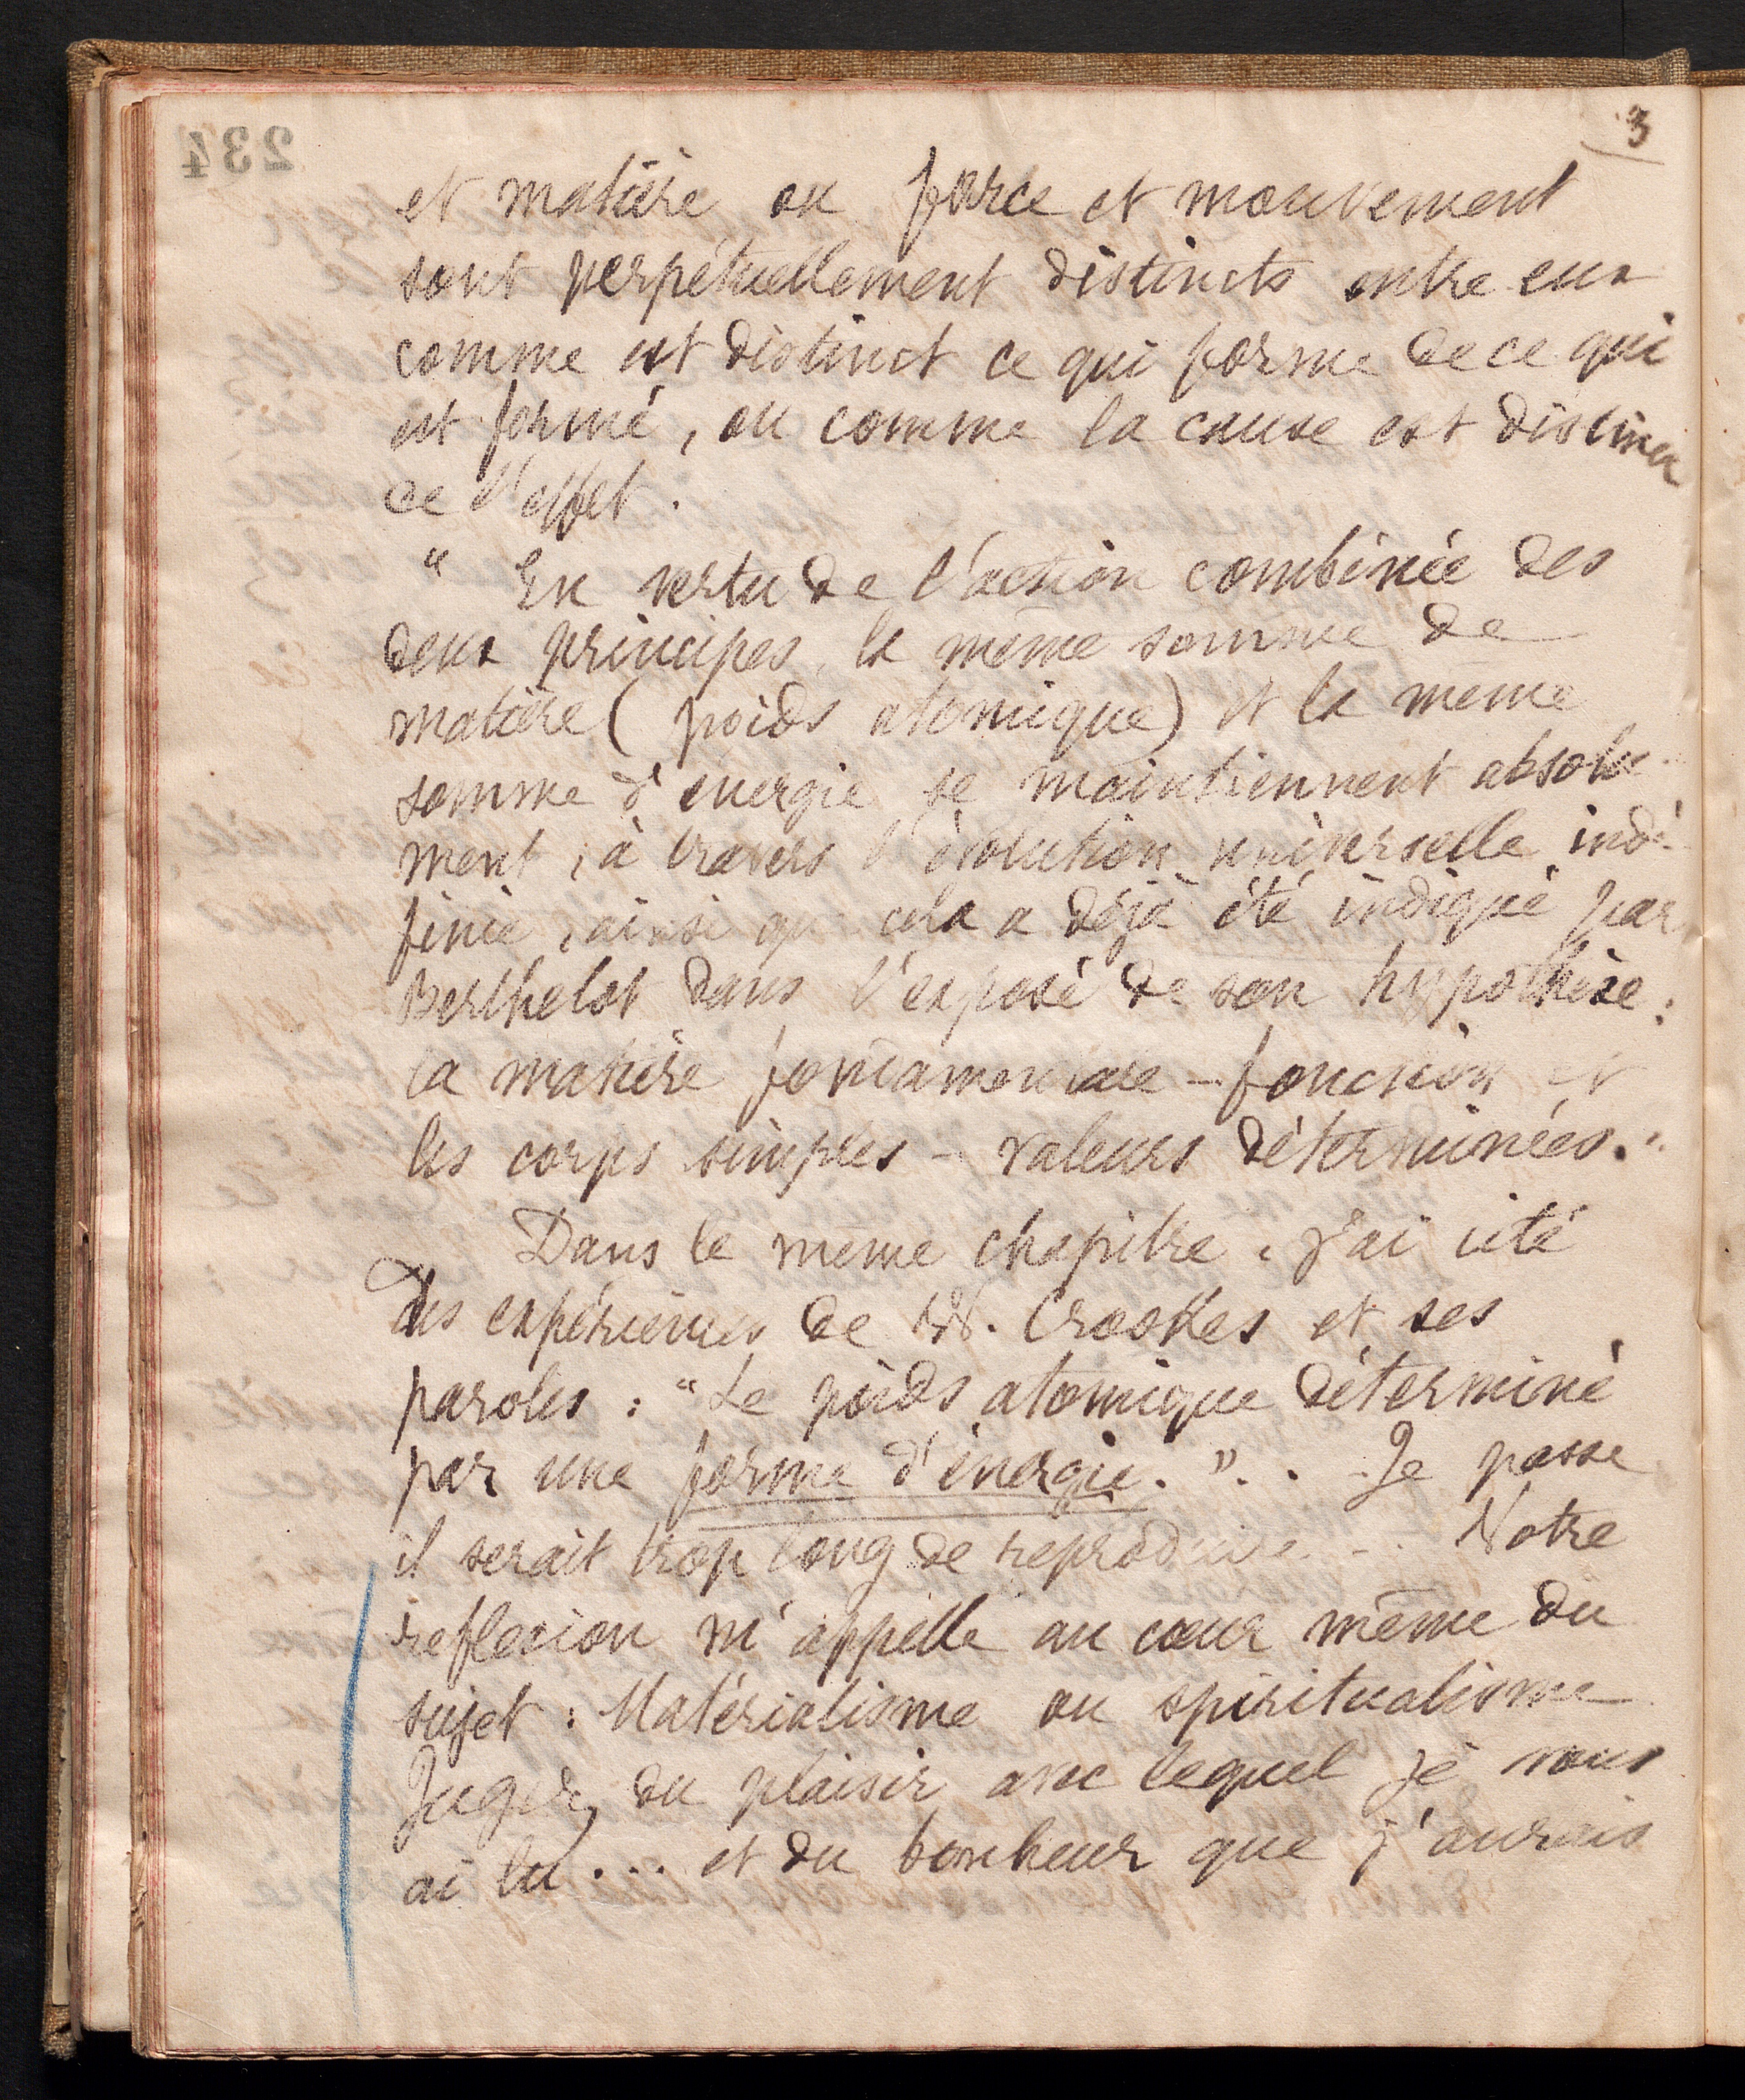 3
234
et matière ou force et mouvement
sont perpétuellement distincts entre eux
comme est distinct ce qui forme de ce qui
est formé, ou comme la cause est distincte
de l'effet.
" En vertu de l'action combinée des
deux principes, la même somme de
matière (poids atomique) et la même
somme d'énergie se maintiennent absolu-
ment, à travers l'évolution universelle indé-
finie, ainsi que cela a déjà été indiqué par
Berthelot dans l'exposé de son hypothèse :
la matière fondamentale – fonction et
les corps simples – valeurs déterminées."
Dans le même chapitre, j'ai cité
des expériences de W. Crookes et ses
paroles : "Le poids atomique déterminé
par une forme d'énergie." . . Je passe
il serait trop long de reproduire – . Notre
reflexion m'appelle au cœur même du
sujet : Matérialisme ou spiritualisme
Jugez du plaisir avec lequel je vous
ai lu . . . et du bonheur que j'aurais